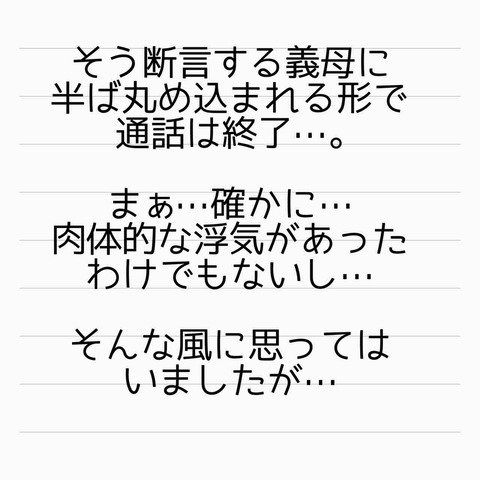 そう断言する義母に
半ば丸め込まれる形で
通話は終了…。
まぁ…確かに…
肉体的な浮気があった
わけでもないし…
そんな風に思っては
いましたが…